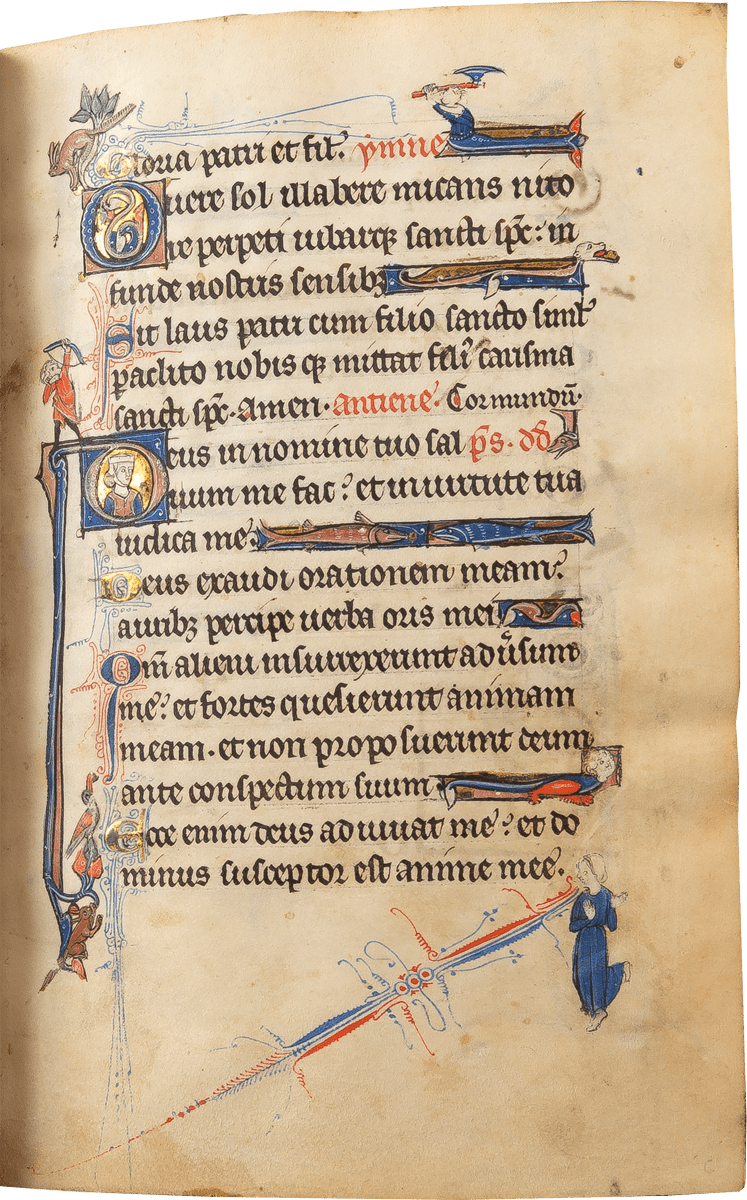 Gloria patri et fil'. ymne
Uere sol illabere micans nito
re perpeti iubarqꝫ sancti sp̄c: in
funde nostris sensibꝫ
Sit laus patri cum filio sancto simł
paclito nobis qꝫ mittat fili' carisma
sancti sp̄c. Amen. antiene. Cor mundū.
Deus in nomine tuo sal p̄s. dd̄
uum me fac: et in uirtute tua
iudica me.
Deus exaudi orationem meam:
auribꝫ percipe uerba oris mei
Qm̄ alieni insurrexerunt adu'sum
me: et fortes quesierunt animam
meam. et non proposuerunt deum
ante conspectum suum
Ecce enim deus adiuuat me: et do
minus susceptor est anime mee.